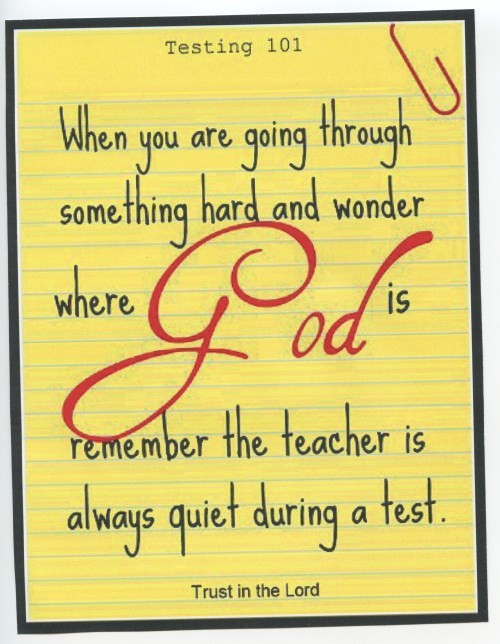 Testing 101
When you are going through
something hard and wonder
where God is
remember the teacher is
always quiet during a test.
Trust in the Lord